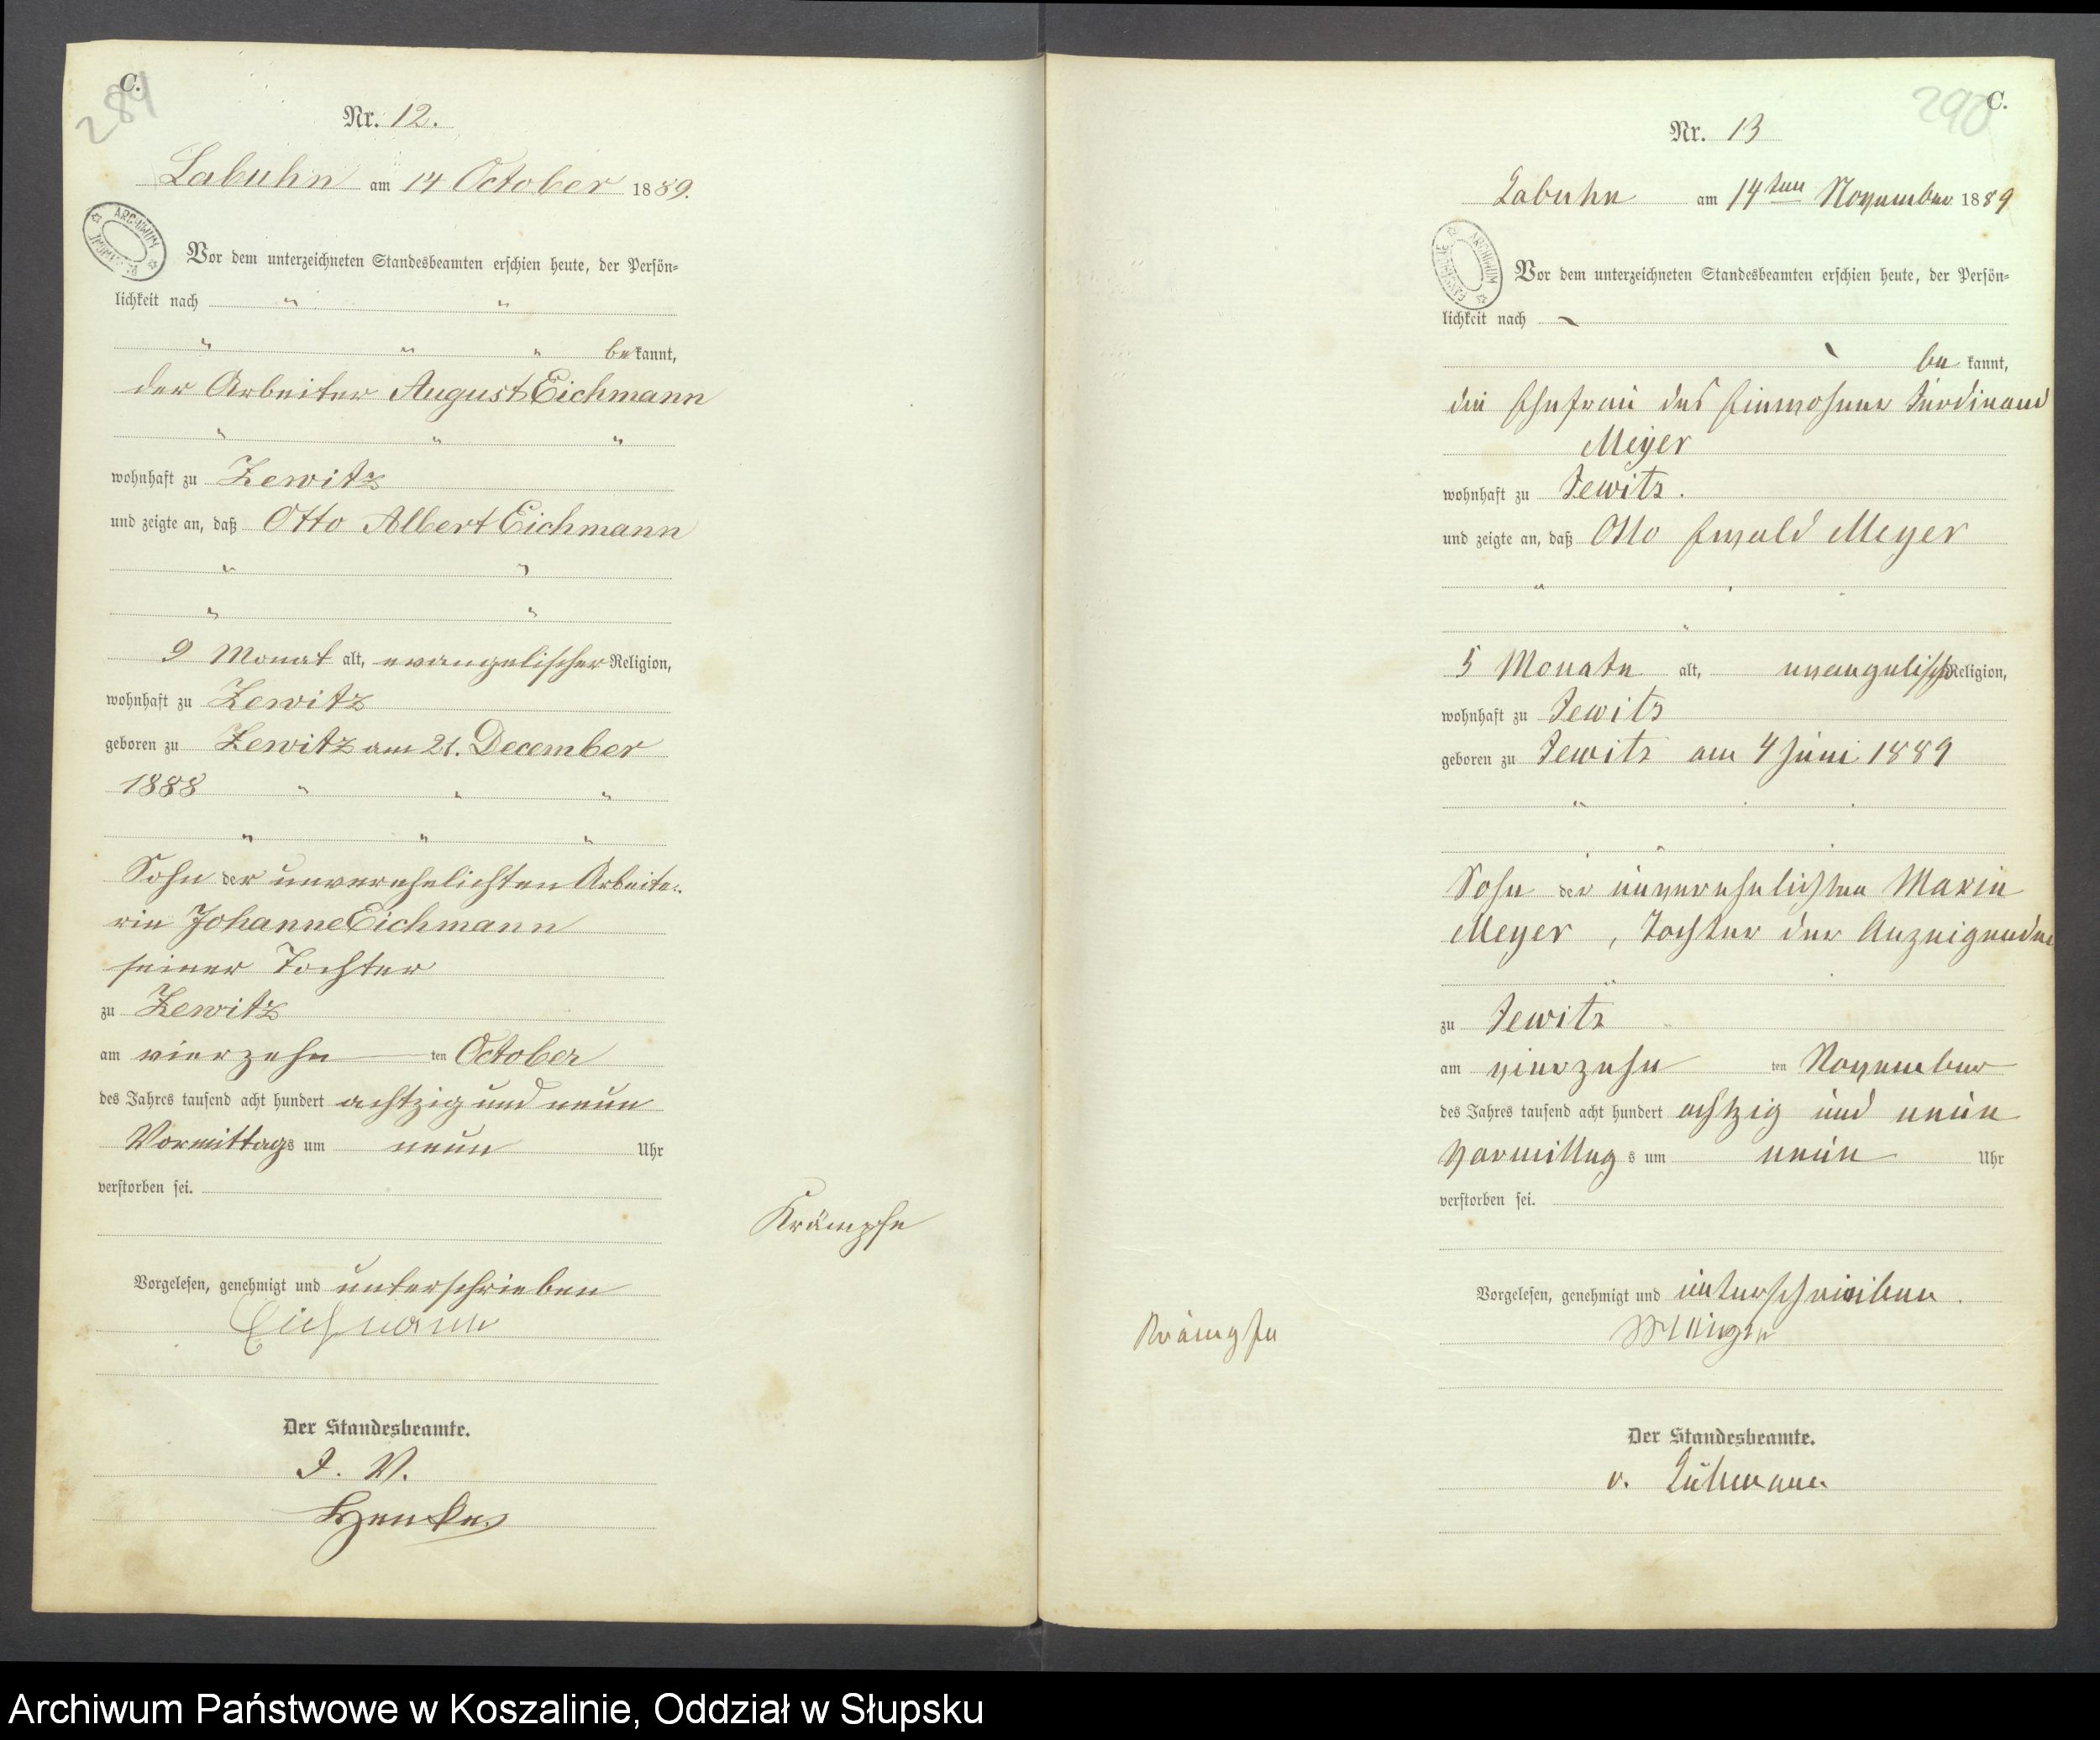 C.
289
Nr. 12.
Labuhn am 14 October 1889.
Vor dem unterzeichneten Standesbeamten erschien heute, der Persön-
lichkeit nach " "
" " " bekannt,
der Arbeiter August Eichmann
" " "
wohnhaft zu Zewitz
und zeigte an, daß Otto Albert Eichmann
" "
" "
9 Monat alt, evangelischer Religion,
wohnhaft zu Zewitz
geboren zu Zewitz am 21. December
1888 " " "
" " "
Sohn der unverehelichten Arbeite-
rin Johanne Eichmann
seiner Tochter
zu Zewitz
am vierzehn ten October
des Jahres tausend acht hundert achtzig und neun
Vormittags um neun Uhr
verstorben sei.
Krämpfe
Vorgelesen, genehmigt und unterschrieben
Eichmann
Der Standesbeamte.
I. V.
C.
290
Nr. 13
Labuhn am 14ten November 1889
Vor dem unterzeichneten Standesbeamten erschien heute, der Persön-
lichkeit nach
be kannt,
die Ehefrau des Einwohner Ferdinand
Meyer
wohnhaft zu Zewitz.
und zeigte an, daß Otto Ewald Meyer
5 Monate alt, evangelisch Religion,
wohnhaft zu Zewitz
geboren zu Zewitz am 4 Juni 1889
Sohn der unverehelichten Marie
Meyer, Tochter der Anzeigenden
zu Zewitz
am vierzehn ten November
des Jahres tausend acht hundert achtzig und neun
Vormittag s um neun Uhr
verstorben sei.
Vorgelesen, genehmigt und unterschrieben.
Krämpfe
Der Standesbeamte.
ARCHIWUM
ARCHIWUM
Archiwum Państwowe w Koszalinie, Oddział w Słupsku